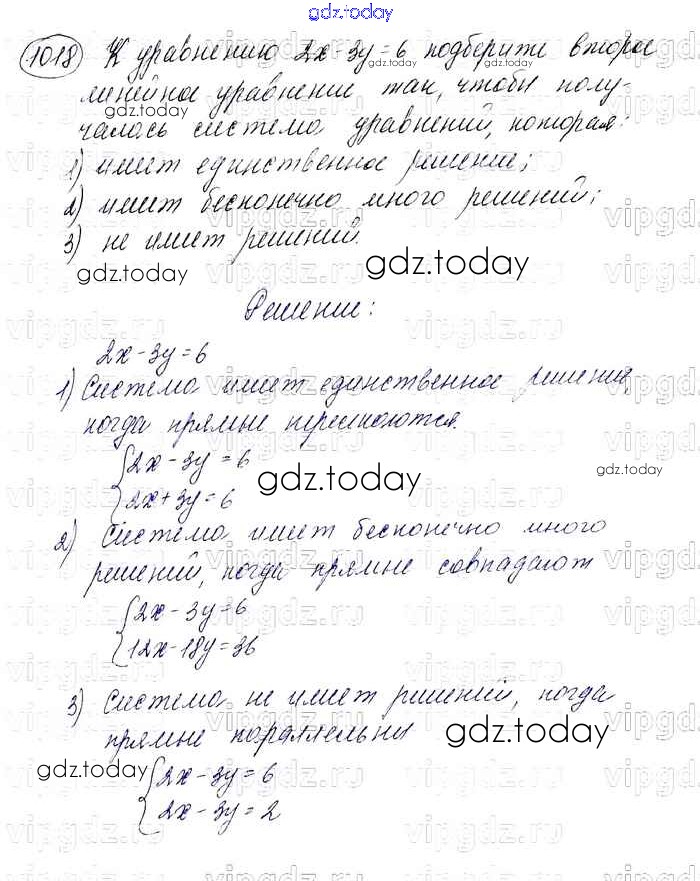 gdz.today
1018 К уравнению 2x-3y=6 подберите второе
линейное уравнение так, чтобы полу-
чалось система уравнений, которая:
1) имеет единственное решение;
2) имеет бесконечно много решений;
3) не имеет решений.
gdz.today gdz.today
Решение:
2x-3y=6
1) Система имеет единственное решение,
когда прямые пересекаются.
{2x-3y=6
{2x+3y=6
gdz.today gdz.today
2) Система имеет бесконечно много
решений, когда прямые совпадают
{2x-3y=6
{12x-18y=36
3) Система не имеет решений, когда
прямые параллельны
gdz.today gdz.today
{2x-3y=6
{2x-3y=2